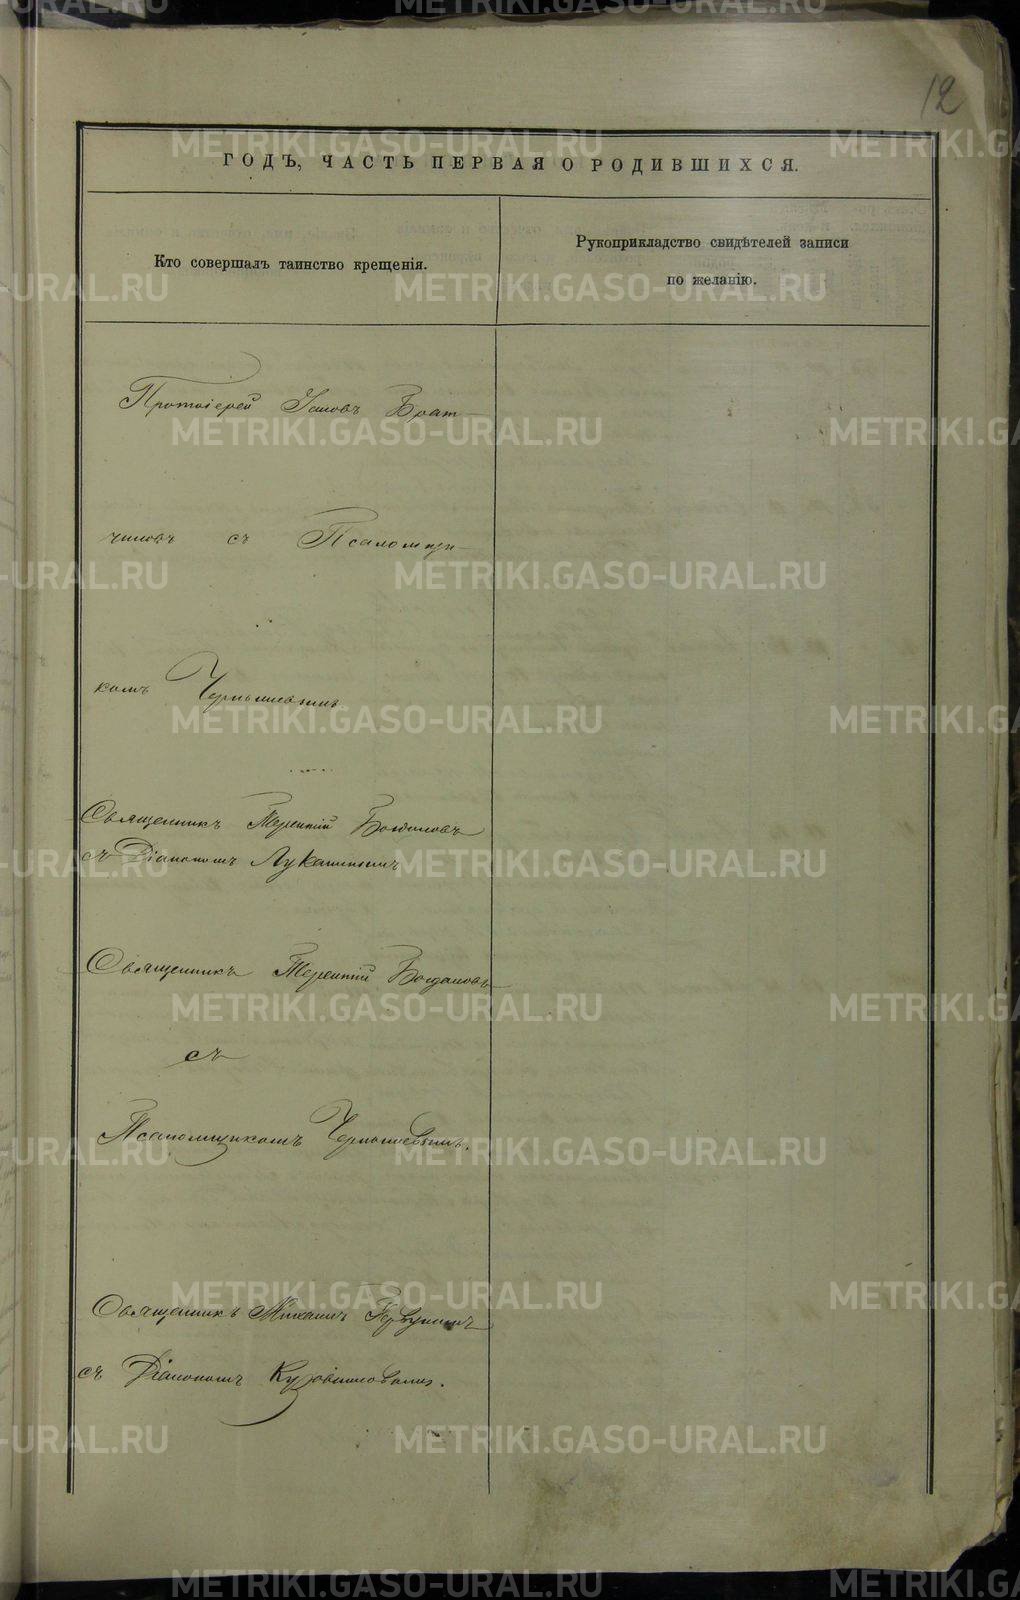 12
ГОДЪ, ЧАСТЬ ПЕРВАЯ О РОДИВШИХСЯ.
Кто совершалъ таинство крещенія.
Рукоприкладство свидѣтелей записи
по желанію.
Протоіерей Іаковъ Брат-
чиковъ съ Псаломщи-
комъ Чернышевымъ
Священникъ Терентій Богдановъ
съ Діакономъ Луканиным
Священникъ Терентій Богдановъ
съ
Псаломщикомъ Чернышевымъ.
Священникъ Михаилъ Первушинъ
съ Діакономъ
METRIKI.GASO-URAL.RU